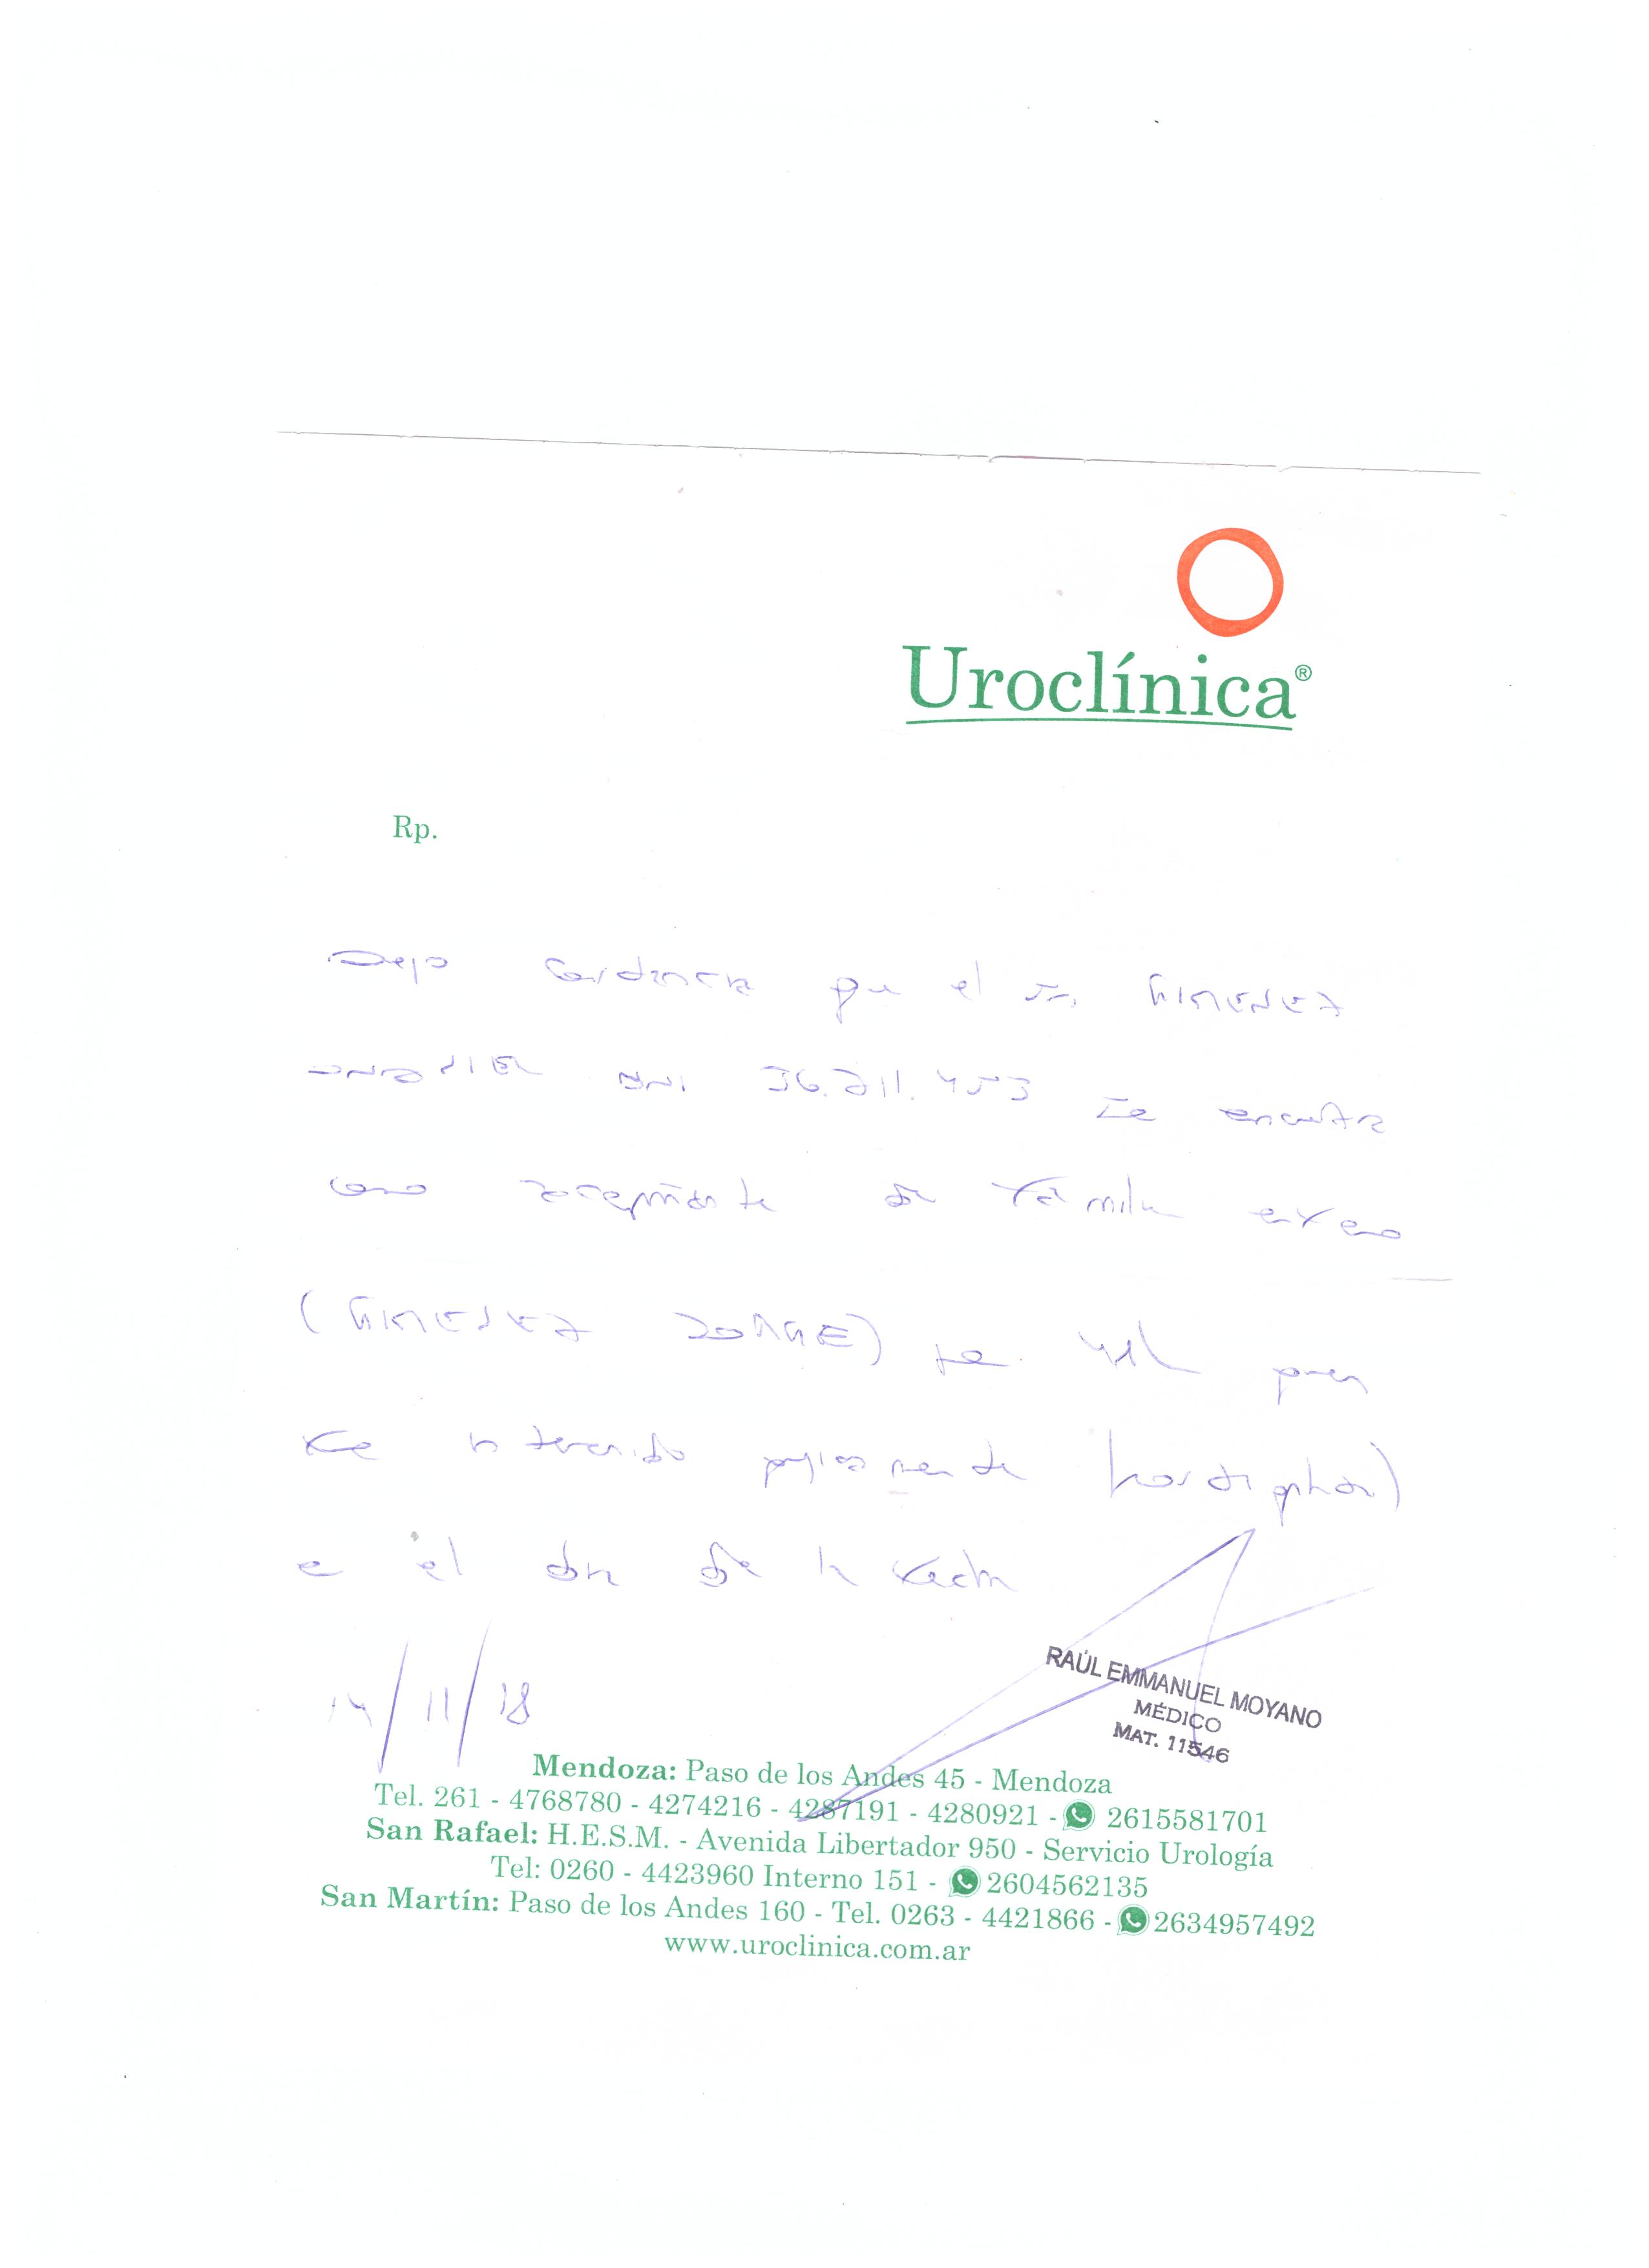 Uroclínica®
Rp.
Dejo constancia que el Sr. GIMENEZ
DNI. 36.211.453 se encuentra
como acompañante de familia
(GIMENEZ JORGE)
intervenido
en el día de la fecha
14/11/18
RAÚL EMMANUEL MOYANO
MÉDICO
MAT. 11546
Mendoza: Paso de los Andes 45 - Mendoza
Tel. 261 - 4768780 - 4274216 - 4287191 - 4280921 - 2615581701
San Rafael: H.E.S.M. - Avenida Libertador 950 - Servicio Urología
Tel: 0260 - 4423960 Interno 151 - 2604562135
San Martín: Paso de los Andes 160 - Tel. 0263 - 4421866 - 2634957492
www.uroclinica.com.ar